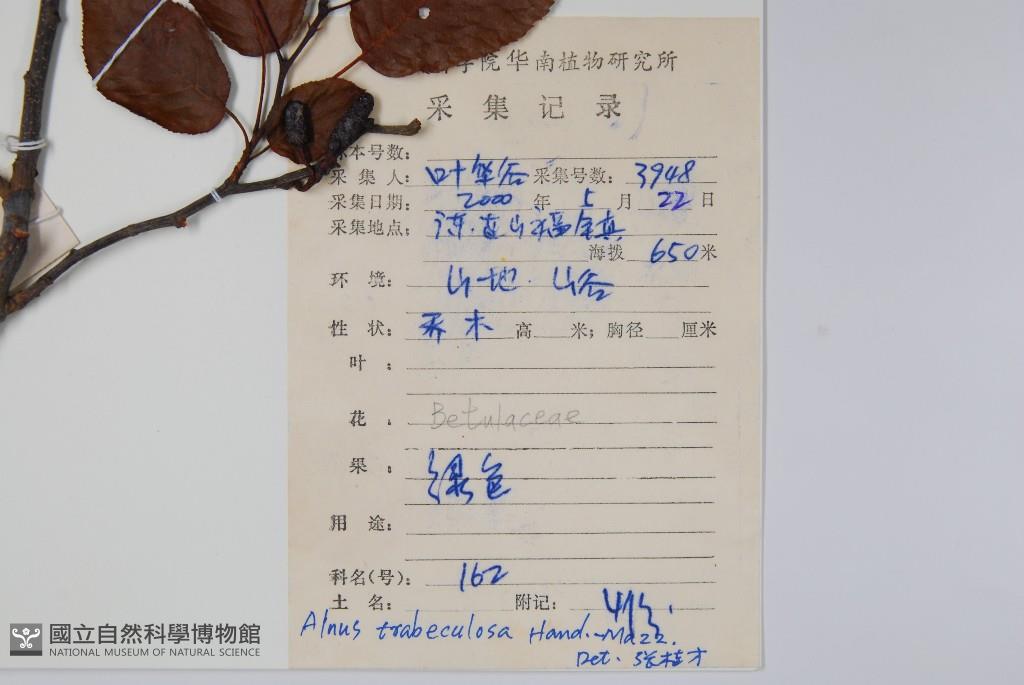 学院华南植物研究所
采集记录
本号数：
采集人：叶华谷 采集号数：3948
采集日期：2000年5月22日
采集地点：
海拨 650米
环境：山地．山谷
性状：乔木 高 米；胸径 厘米
叶：
花：Betulaceae
果：绿色
用途：
科名(号)：162
土名： 附记：
Alnus trabeculosa Hand.-Mazz.
Det. 张桂才
國立自然科學博物館
NATIONAL MUSEUM OF NATURAL SCIENCE